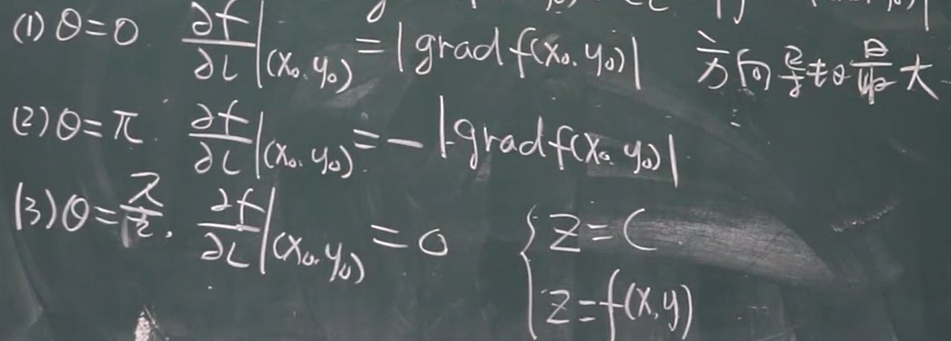 (1) θ=0 ∂f/∂l|(x₀,y₀) = |grad f(x₀,y₀)| 方向导数最大
(2) θ=π. ∂f/∂l|(x₀,y₀) = -|grad f(x₀,y₀)|
(3) θ=π/2, ∂f/∂l|(x₀,y₀) = 0 { z=C
z=f(x,y)